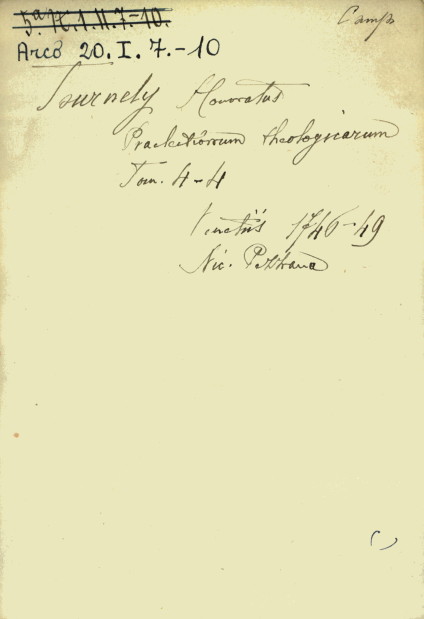 5.a H.1.II.7.-10.
Camp
Arco 20.I.7.-10
Tournely Honoratus
Praelectionum theologicarum
Tom. 4-4
Venetiis 1746-49
Nic. Pezzana